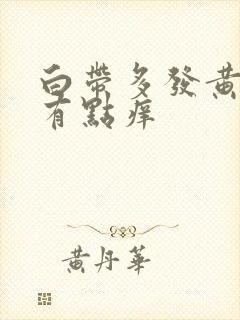 白帶多發黃
有點痒
黃丹華